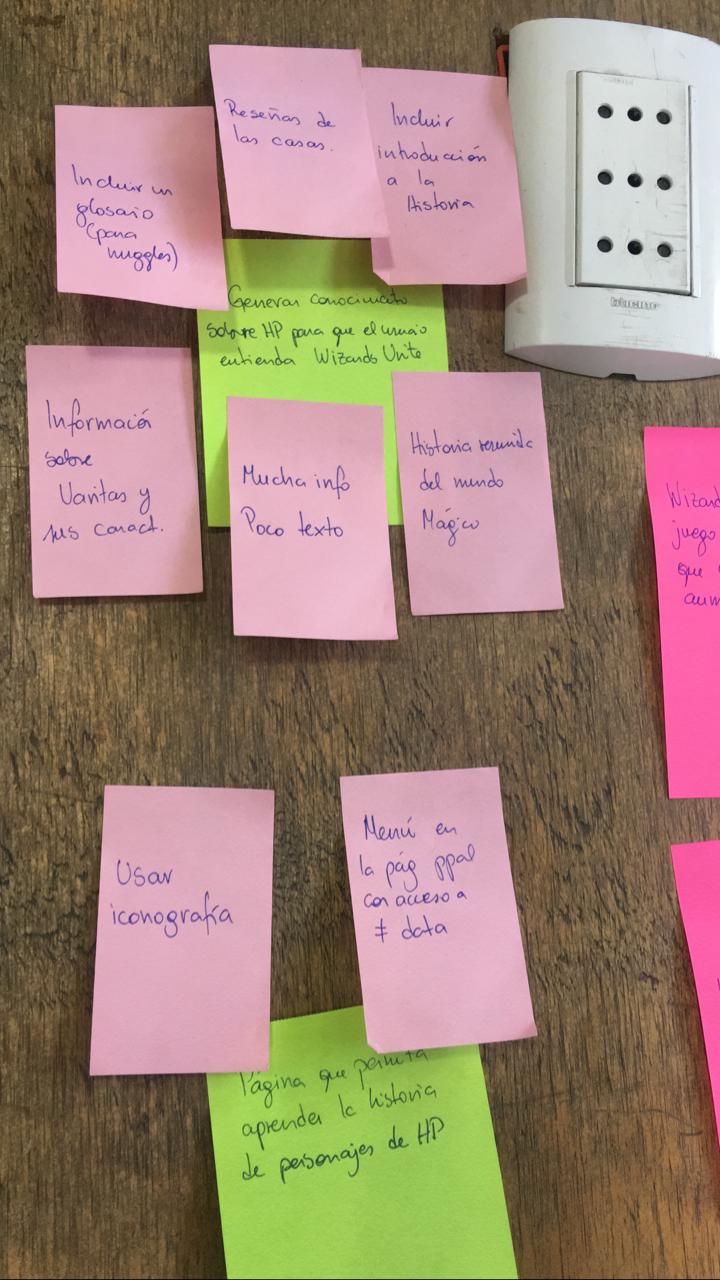 Reseñas de
las casas.
Incluir
introducción
a la
Historia
Incluir un
glosario
(para
muggles)
Generar conocimiento
sobre HP para que el usuario
entienda Wizards Unite
Información
sobre
Varitas y
sus caract.
Mucha info
Poco texto
Historia resumida
del mundo
Mágico
Wizard
juego
que
aum
Usar
iconografía
Menú en
la pág ppal
con acceso a
≠ data
Página que permita
aprender la historia
de personajes de HP